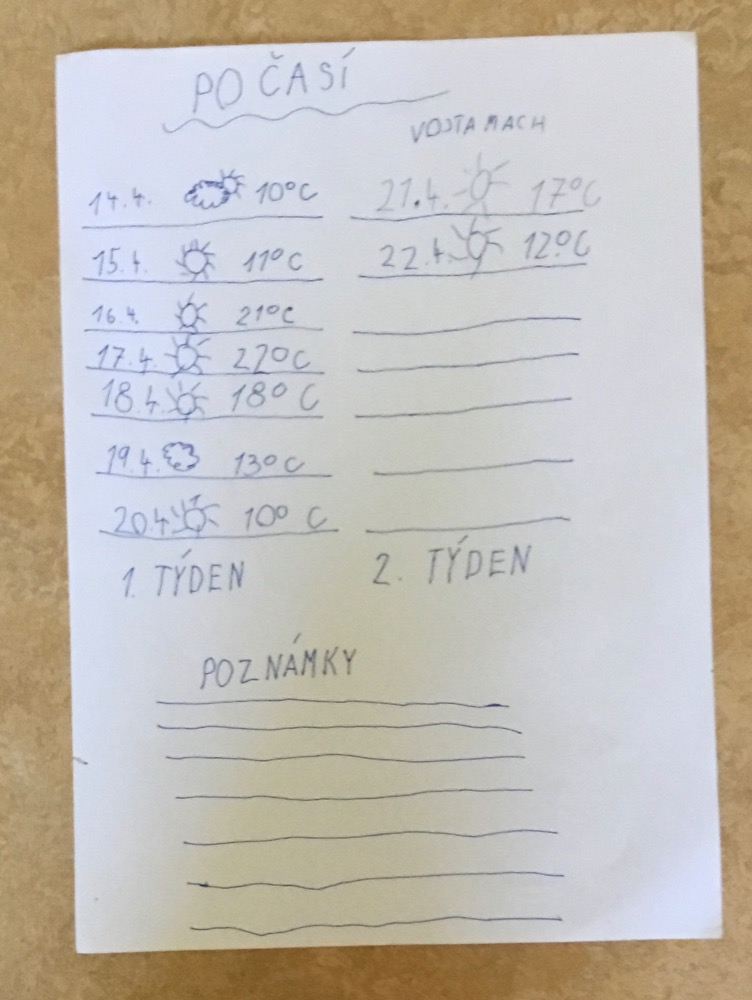 POČASÍ
VOJTA MACH
14.4. 10°C
15.4. 11°C
16.4. 21°C
17.4. 22°C
18.4. 18°C
19.4. 13°C
20.4 10°C
1. TÝDEN
21.4. 17°C
22.4. 12°C
2. TÝDEN
POZNÁMKY